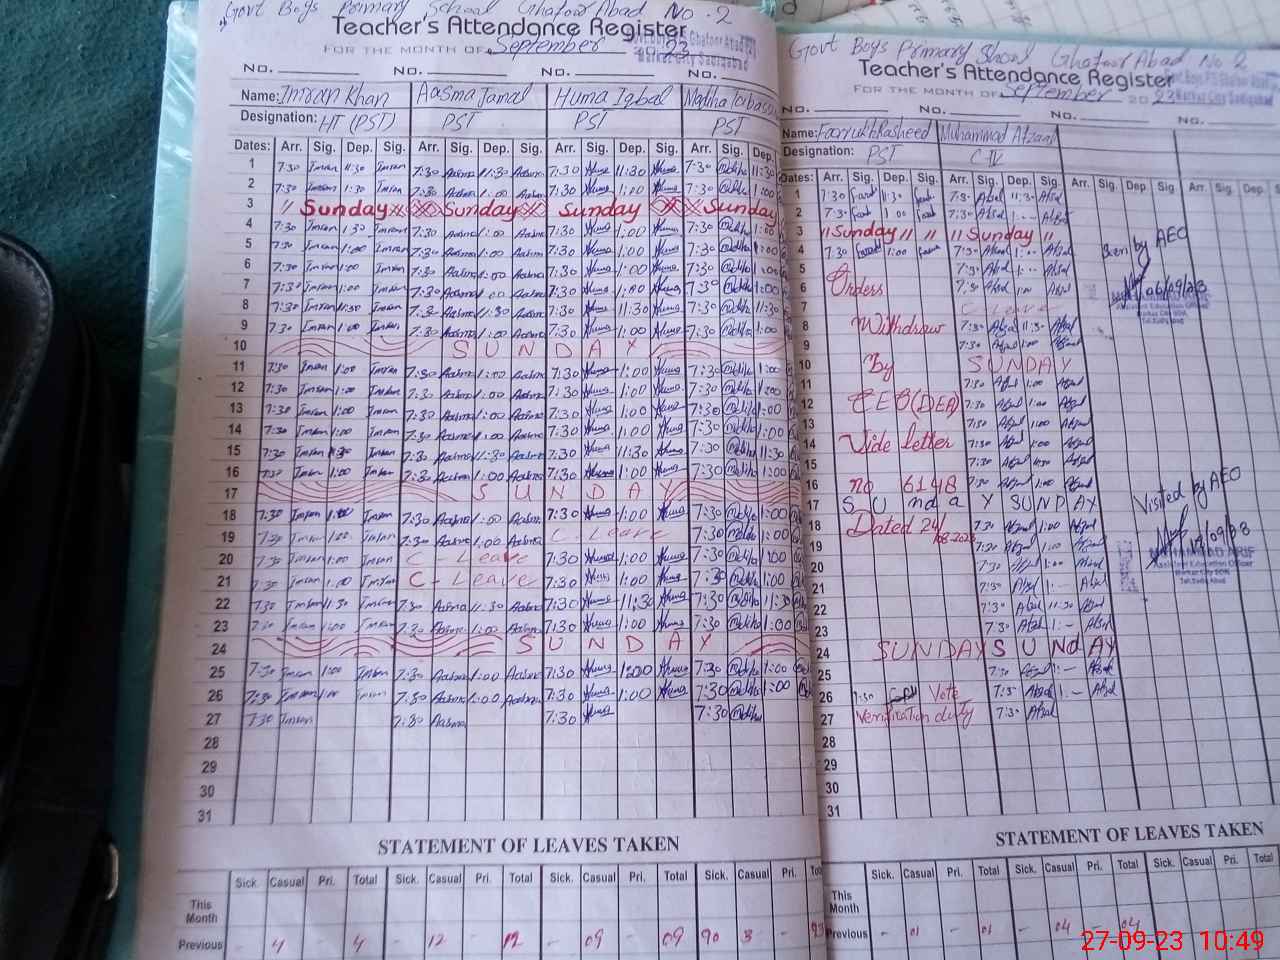 Govt Boys Primary School Ghafoor Abad No. 2
Teacher's Attendance Register
FOR THE MONTH OF September 2023
No. No. No. No.
Name: Imran Khan Aasma Jamal Huma Iqbal
Designation: HT (PST) PST PST PST
Dates: Arr. Sig. Dep. Sig. Arr. Sig. Dep. Sig. Arr. Sig. Dep. Sig. Arr. Sig. Dep.
1 7:30 Imran 11:30 Imran 7:30 Aasma 11:30 Aasma 7:30 Huma 11:30 Huma 7:30 11:30
2 7:30 Imran 1:30 Imran 7:30 Aasma 1:00 Aasma 7:30 Huma 1:00 Huma 7:30 1:00
3 Sunday Sunday Sunday Sunday
4 7:30 Imran 1:30 Imran 7:30 Aasma 1:00 Aasma 7:30 Huma 1:00 Huma 7:30 1:00
5 7:30 Imran 1:00 Imran 7:30 Aasma 1:00 Aasma 7:30 Huma 1:00 Huma 7:30 1:00
6 7:30 Imran 1:00 Imran 7:30 Aasma 1:00 Aasma 7:30 Huma 1:00 Huma 7:30 1:00
7 7:30 Imran 1:00 Imran 7:30 Aasma 1:00 Aasma 7:30 Huma 1:00 Huma 7:30 1:00
8 7:30 Imran 11:30 Imran 7:30 Aasma 11:30 Aasma 7:30 Huma 11:30 Huma 7:30 11:30
9 7:30 Imran 1:00 Imran 7:30 Aasma 1:00 Aasma 7:30 Huma 1:00 Huma 7:30 1:00
10 SUNDAY
11 7:30 Imran 1:00 Imran 7:30 Aasma 1:00 Aasma 7:30 Huma 1:00 Huma 7:30 1:00
12 7:30 Imran 1:00 Imran 7:30 Aasma 1:00 Aasma 7:30 Huma 1:00 Huma 7:30 1:00
13 7:30 Imran 1:00 Imran 7:30 Aasma 1:00 Aasma 7:30 Huma 1:00 Huma 7:30 1:00
14 7:30 Imran 1:00 Imran 7:30 Aasma 1:00 Aasma 7:30 Huma 1:00 Huma 7:30 1:00
15 7:30 Imran Imran 7:30 Aasma 11:30 Aasma 7:30 Huma 11:30 Huma 7:30 11:30
16 7:30 Imran 1:00 Imran 7:30 Aasma 1:00 Aasma 7:30 Huma 1:00 Huma 7:30 1:00
17 SUNDAY
18 7:30 Imran 1:00 Imran 7:30 Aasma 1:00 Aasma 7:30 Huma 1:00 Huma 7:30 1:00
19 7:30 Imran 1:00 Imran 7:30 Aasma 1:00 Aasma C-Leave 7:30 1:00
20 7:30 Imran 1:00 Imran C-Leave 7:30 Huma 1:00 Huma 7:30 1:00
21 7:30 Imran 1:00 Imran C-Leave 7:30 Huma 1:00 Huma 7:30 1:00
22 7:30 Imran 11:30 Imran 7:30 Aasma 11:30 Aasma 7:30 Huma 11:30 Huma 7:30 11:30
23 7:30 Imran 1:00 Imran 7:30 Aasma 1:00 Aasma 7:30 Huma 1:00 Huma 7:30 1:00
24 SUNDAY
25 7:30 Imran 1:00 Imran 7:30 Aasma 1:00 Aasma 7:30 Huma 1:00 Huma 7:30 1:00
26 7:30 Imran 1:00 Imran 7:30 Aasma 1:00 Aasma 7:30 Huma 1:00 Huma 7:30 1:00
27 7:30 Imran 7:30 Aasma 7:30 Huma 7:30
28
29
30
31
STATEMENT OF LEAVES TAKEN
Sick. Casual Pri. Total Sick. Casual Pri. Total Sick. Casual Pri. Total Sick. Casual Pri.
This Month
Previous - 4 - 4 - 12 - 12 - 09 - 09 90 3 -
Govt Boys Primary School Ghafoor Abad No 2
Teacher's Attendance Register
FOR THE MONTH OF September 2023
No. No. No. No.
Name: Farrukh Rasheed Muhammad Afzaal
Designation: PST
Dates: Arr. Sig. Dep. Sig. Arr. Sig. Dep. Sig. Arr. Sig. Dep. Sig. Arr. Sig. Dep.
1 7:30 11:30 7:30 Afzal 11:30 Afzal
2 7:30 1:00 7:30 Afzal 1:- Afzal
3 Sunday Sunday
4 7:30 1:00 7:30 Afzal 1:- Afzal
Seen by AEO
06/09/23
5 7:30 Afzal 1:- Afzal
6 Orders 7:30 Afzal 1:00 Afzal
7 C Leave
8 Withdraw 7:30 Afzal 11:30 Afzal
9 7:30 Afzal 1:00 Afzal
10 By SUNDAY
11 7:30 Afzal 1:00 Afzal
12 CEO(DEA) 7:30 Afzal 1:00 Afzal
13 7:30 Afzal 1:00 Afzal
14 Vide letter 7:30 Afzal 1:00 Afzal
15 7:30 Afzal 11:30 Afzal
16 no 6148 7:30 Afzal 1:00 Afzal
17 SUndaY SUNDAY
Visited by AEO
18 Dated 24/08.2023 7:30 Afzal 1:00 Afzal
19 7:30 Afzal 1:00 Afzal
MUHAMMAD ARIF
Assistant Education Officer
20 7:30 1:00 Afzal
21 7:30 Afzal 1:- Afzal
22 7:30 Afzal 11:30 Afzal
23 7:30 Afzal 1:- Afzal
24 SUNDAY SUNdAY
25 7:30 Afzal 1:- Afzal
26 7:30 Vote 7:30 Afzal 1:- Afzal
27 Verification duty 7:30 Afzal
28
29
30
31
STATEMENT OF LEAVES TAKEN
Sick. Casual Pri. Total Sick. Casual Pri. Total Sick. Casual Pri. Total Sick. Casual
This Month
Previous - 01 - 01 - 04 - 04
27-09-23 10:49